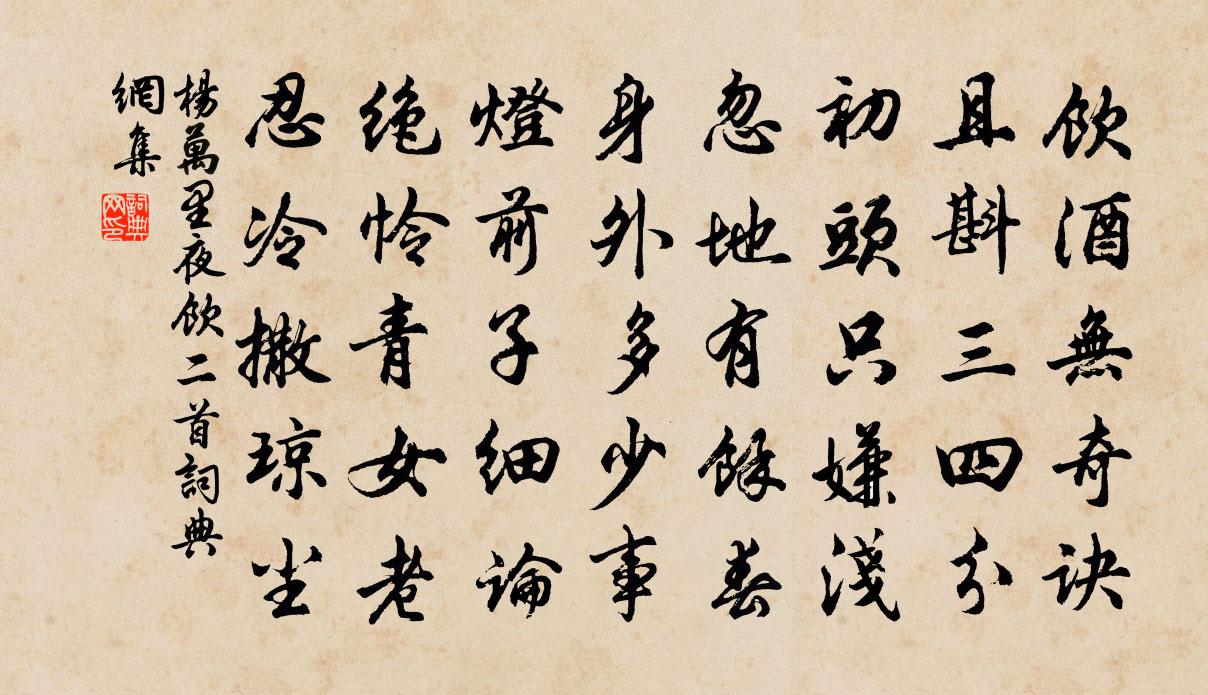 飲酒無奇訣
且斟三四分
初頭只嫌淺
忽地有餘春
身外多少事
燈前子細論
絕怜青女老
忍冷撒琼尘
楊萬里夜飲二首詞典
網集
詞典網印